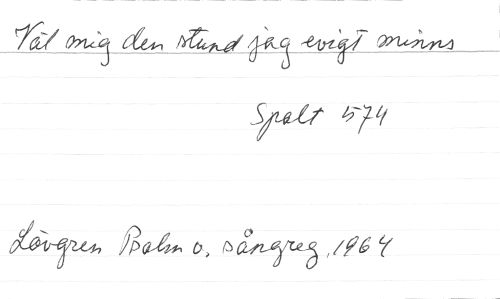 Väl mig den stund jag evigt minns
Spalt 574
Lövgren Psalm o. sångreg. 1964